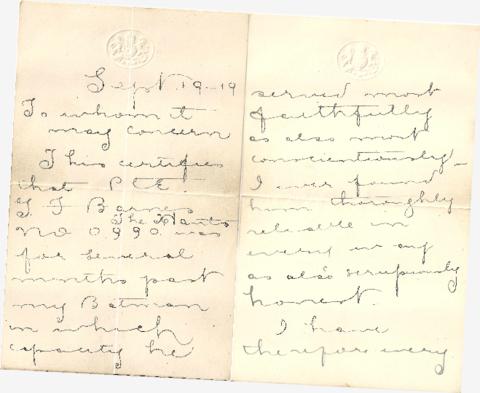 Sept. 19-19
To whom it
may concern
This certifies
that PTE.
Barnes
The Hants
No 0990 was
for several
months past
my Batman
in which
capacity he
served most
faithfully
as also most
conscientiously_
I ever found
him thoroughly
reliable in
every way
as also scrupulously
honest.
I have
therefore every